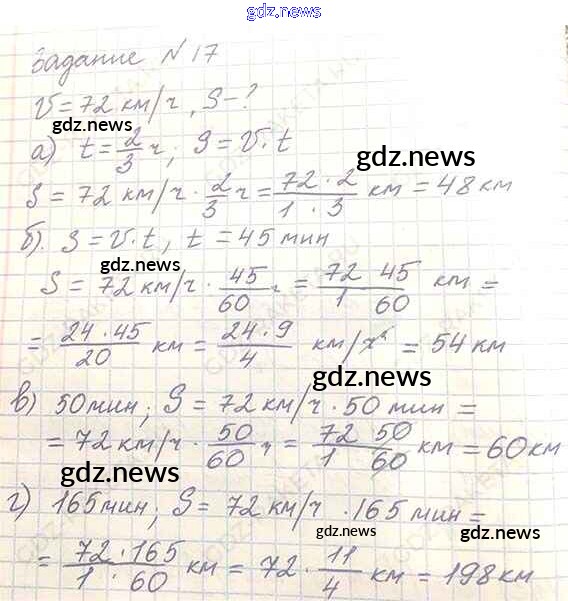 gdz.news
Задание N 17
V = 72 км/ч, S - ?
gdz.news
а) t = 2/3 ч; S = V · t
gdz.news
S = 72 км/ч · 2/3 ч = 72 · 2 / 1 · 3 км = 48 км
б). S = V · t, t = 45 мин
gdz.news
S = 72 км/ч · 45/60 ч = 72 45 / 1 60 км =
= 24 · 45 / 20 км = 24 · 9 / 4 км/ч = 54 км
gdz.news
в) 50 мин; S = 72 км/ч · 50 мин =
= 72 км/ч · 50/60 ч = 72 50 / 1 60 км = 60 км
gdz.news
г) 165 мин; S = 72 км/ч · 165 мин =
gdz.news gdz.news
= 72 · 165 / 1 · 60 км = 72 · 11/4 км = 198 км
gdz.news